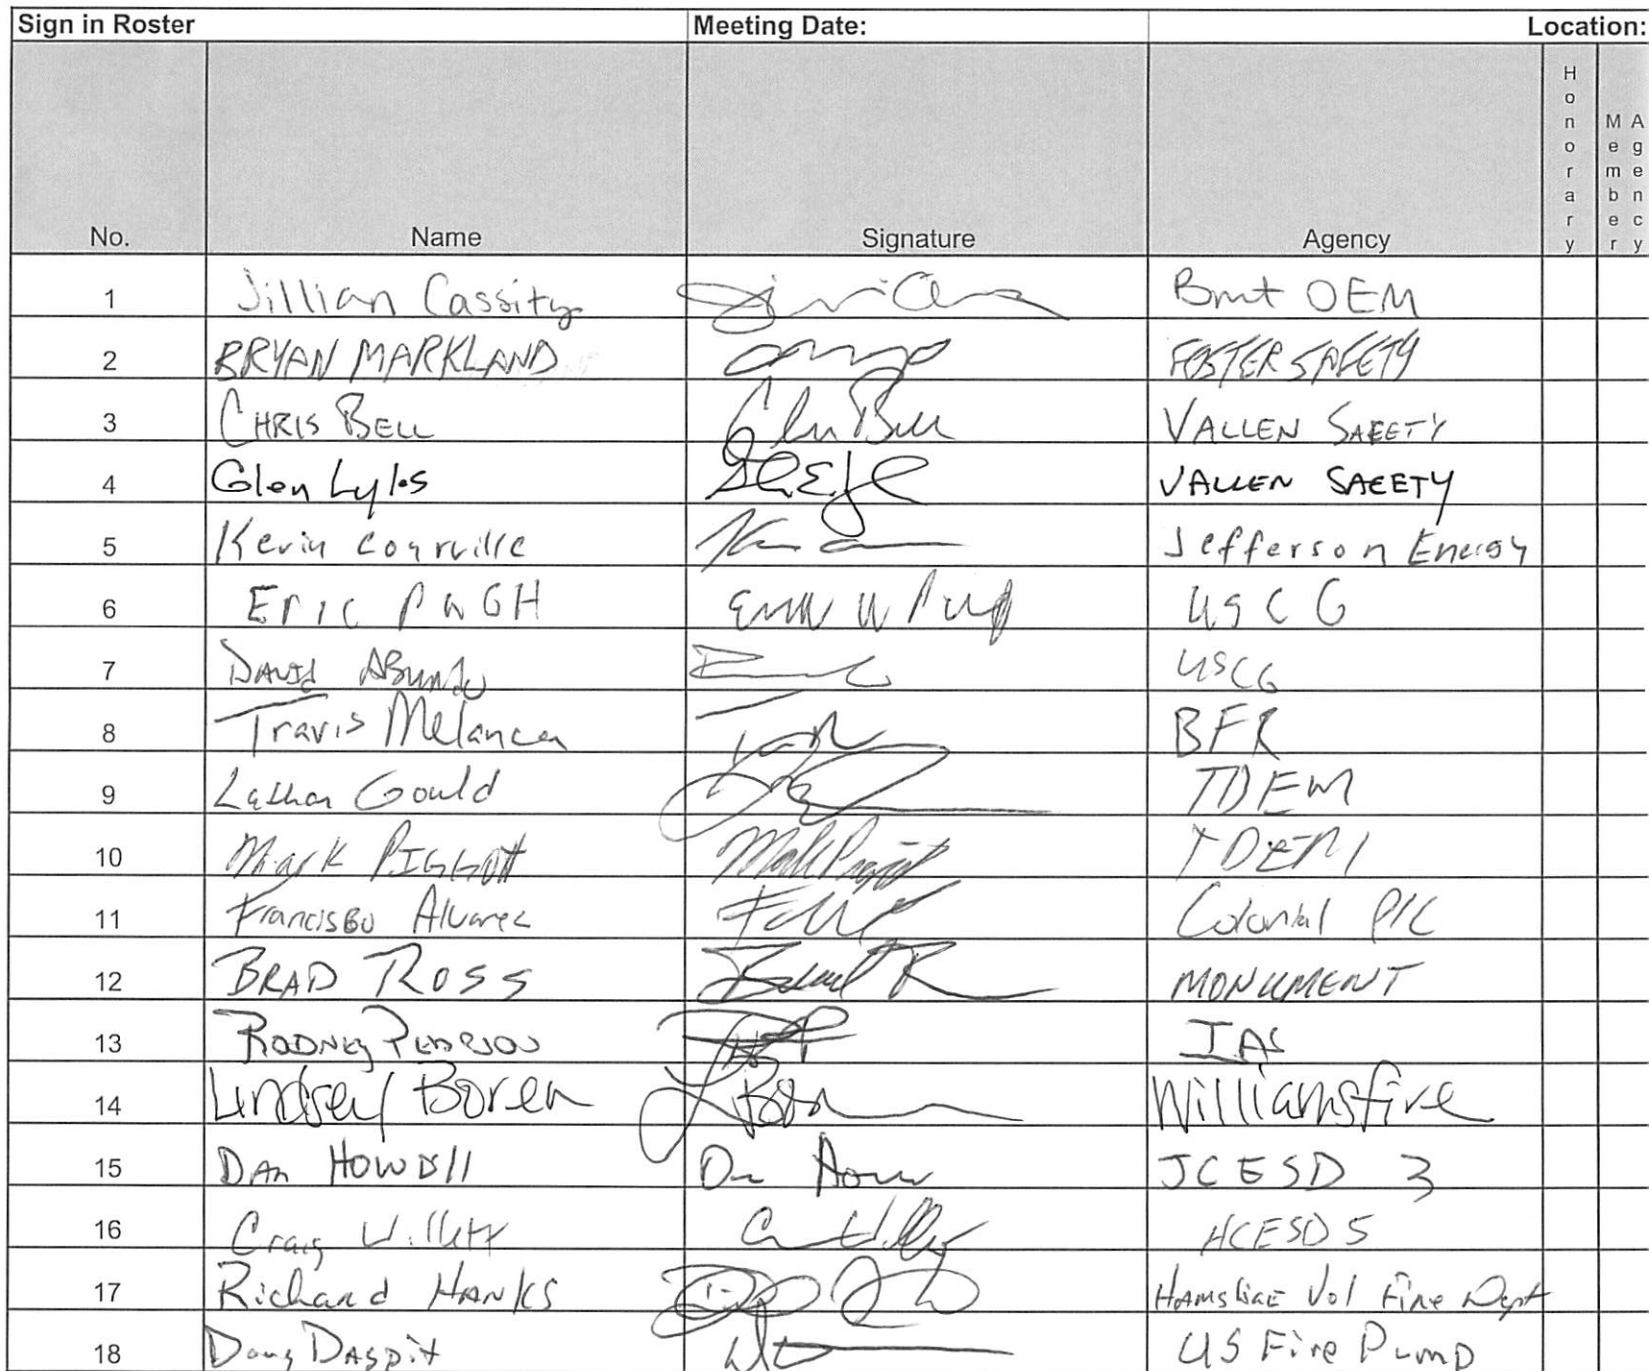 Sign in Roster Meeting Date: Location:
No. Name Signature Agency Honorary Member Agency
1 Jillian Cassity Bmt OEM
2 BRYAN MARKLAND FOSTER SAFETY
3 CHRIS BELL Chris Bell VALLEN SAFETY
4 Glen Lyles VALLEN SAFETY
5 Kevin Courville Jefferson Energy
6 ERIC PUGH Eric W Pugh USCG
7 DAVID ABUNDO USCG
8 Travis Melancon BFR
9 Lathan Gould TDEM
10 Mark PIGGOTT Mark Piggott TDEM
11 Francisco Alvarez Colonial P/C
12 BRAD ROSS MONUMENT
13 RODNEY PEARSON IAS
14 Lindsey Boren Williamsfire
15 DAn HOWEll JCESD 3
16 Craig Willett HCESD 5
17 Richard HANKS Vol Fire Dept
18 Doug DASpit US Fire Pump